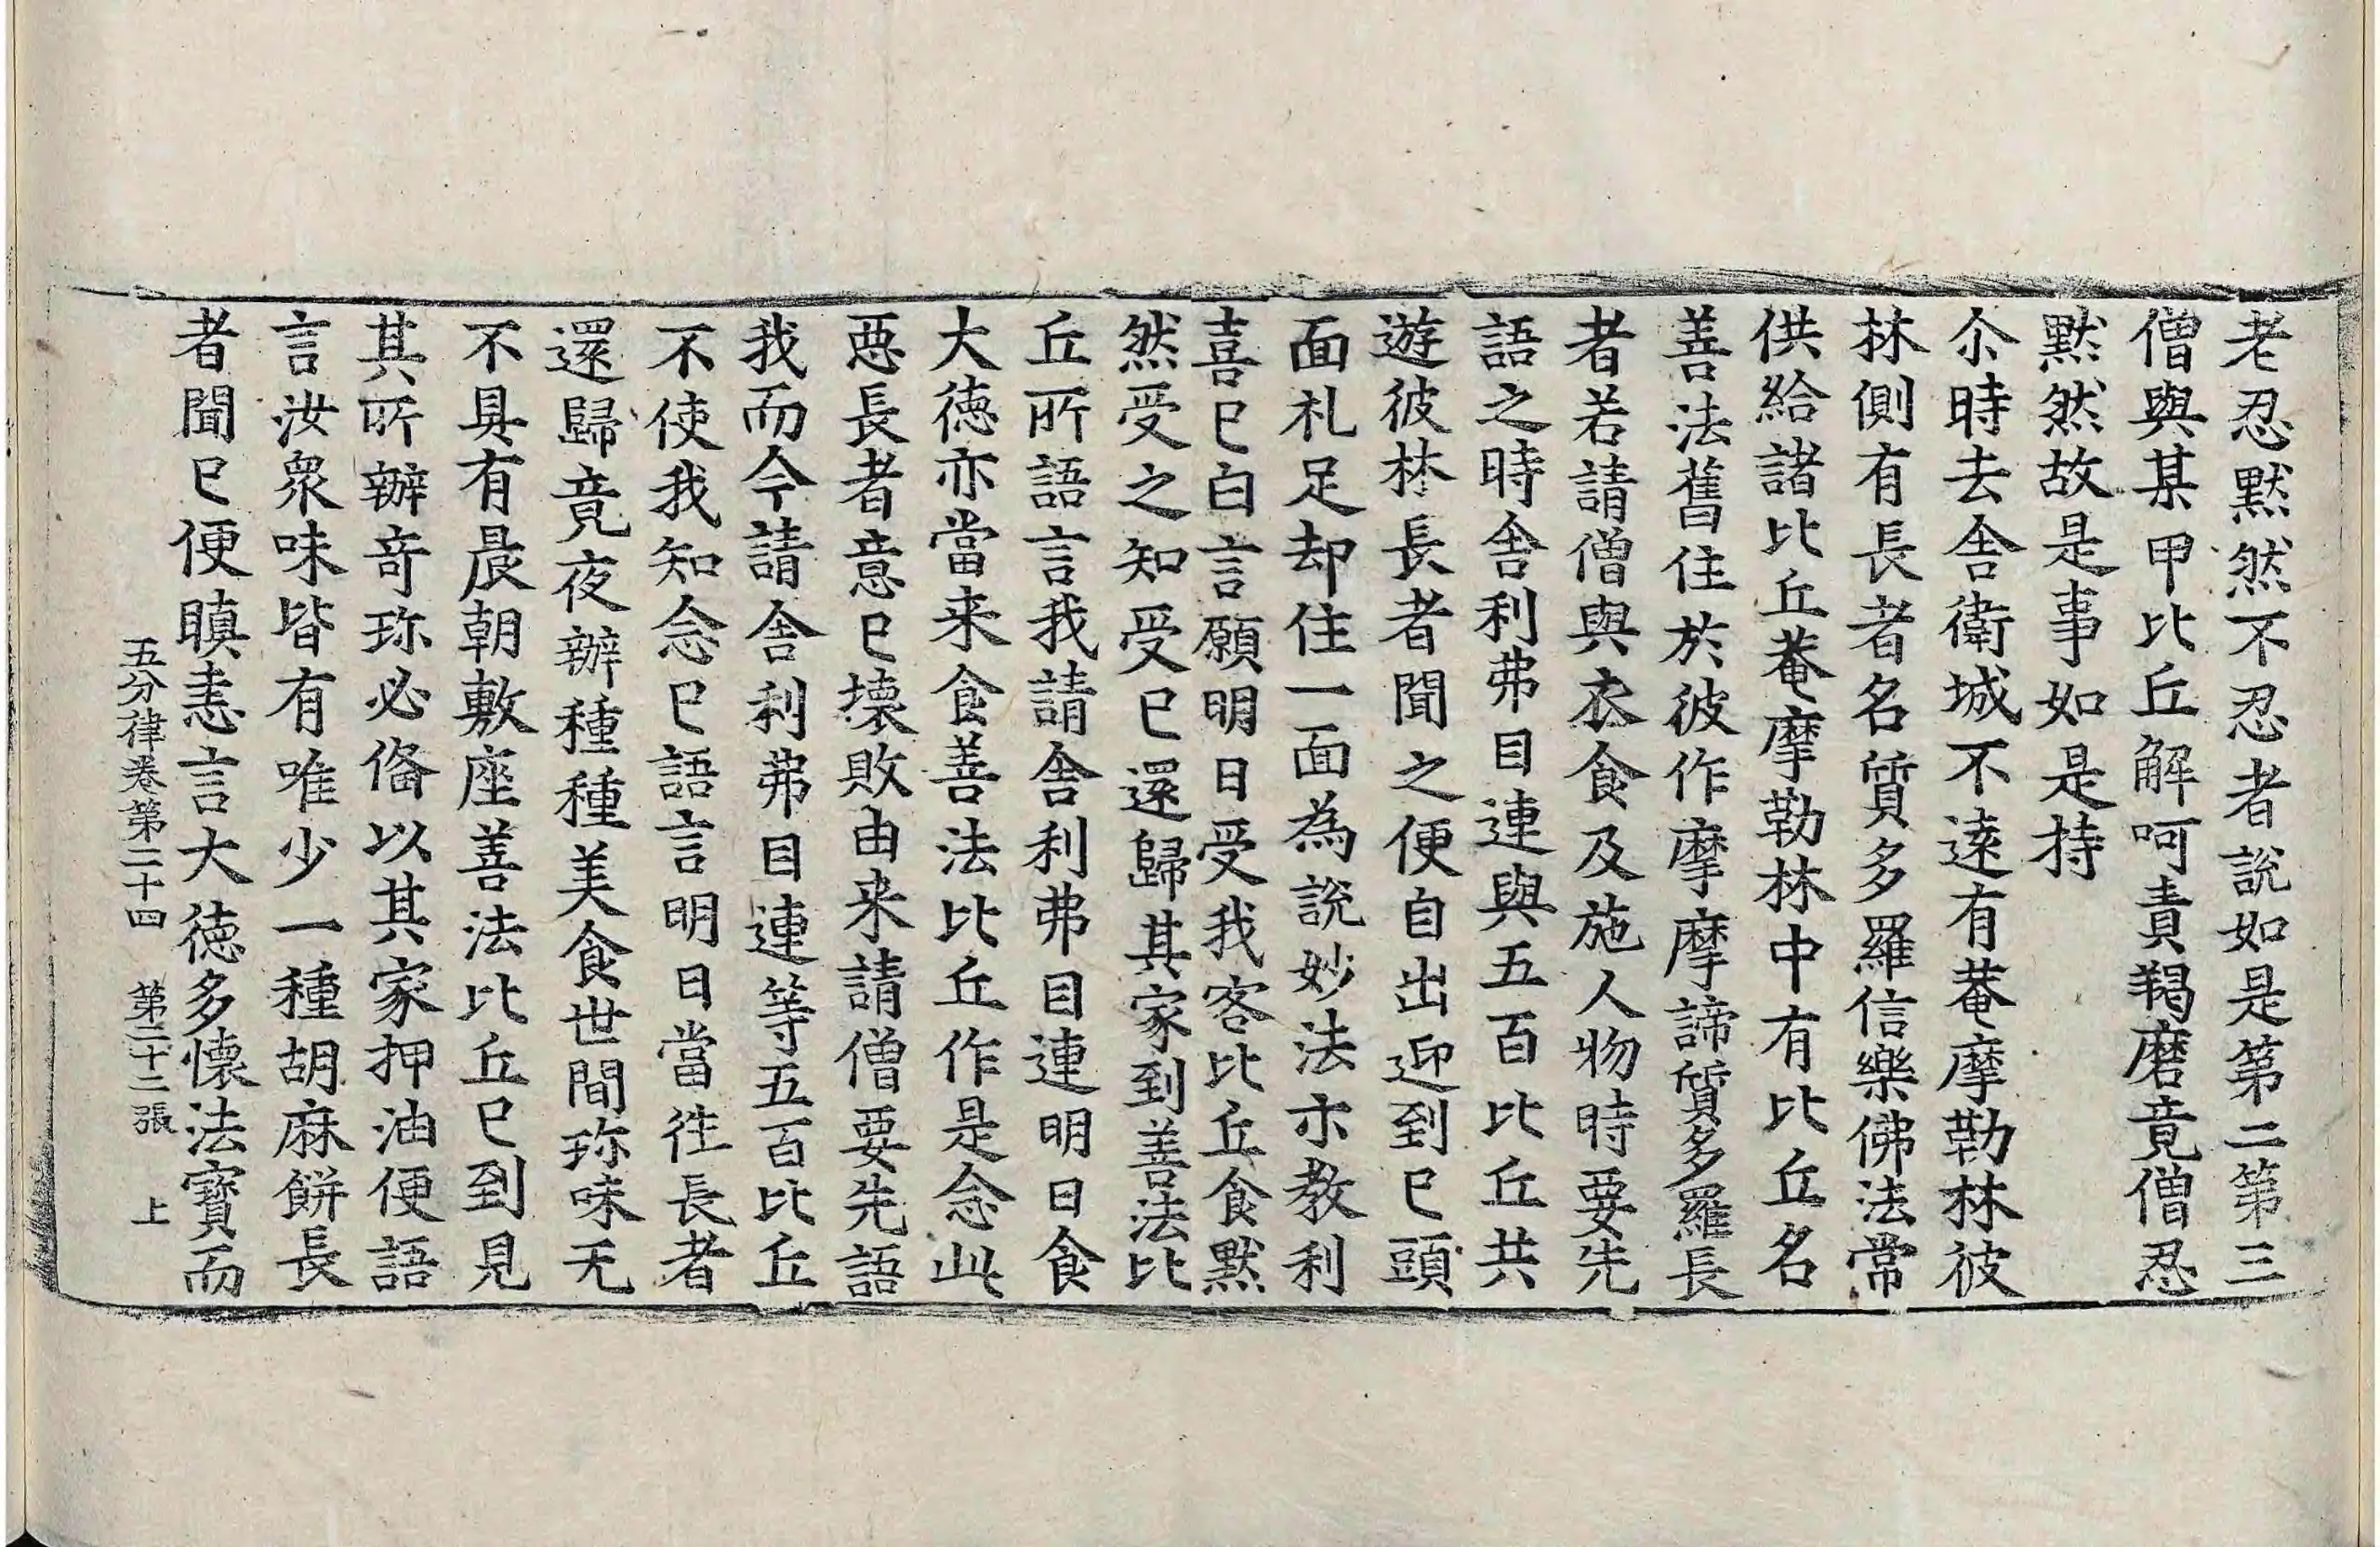 老忍默然不忍者說如是第二第三
僧與某甲比丘解呵責羯磨竟僧忍
默然故是事如是持
尒時去舍衛城不遠有菴摩勒林彼
林側有長者名質多羅信樂佛法常
供給諸比丘菴摩勒林中有比丘名
善法舊住於彼作摩摩諦質多羅長
者若請僧與衣食及施人物時要先
語之時舍利弗目連與五百比丘共
遊彼林長者聞之便自出迎到已頭
面礼足却住一面為說妙法示教利
喜已白言願明日受我客比丘食默
然受之知受已還歸其家到善法比
丘所語言我請舍利弗目連明日食
大徳亦當来食善法比丘作是念此
惡長者意已壊敗由来請僧要先語
我而今請舍利弗目連等五百比丘
不使我知念已語言明日當往長者
還歸竟夜辦種種美食世間珎味无
不具有晨朝敷座善法比丘已到見
其所辦奇珎必俻以其家押油便語
言汝衆味皆有唯少一種胡麻餅長
者聞已便瞋恚言大徳多懐法寳而
五分律卷第二十四　第二十二張　上